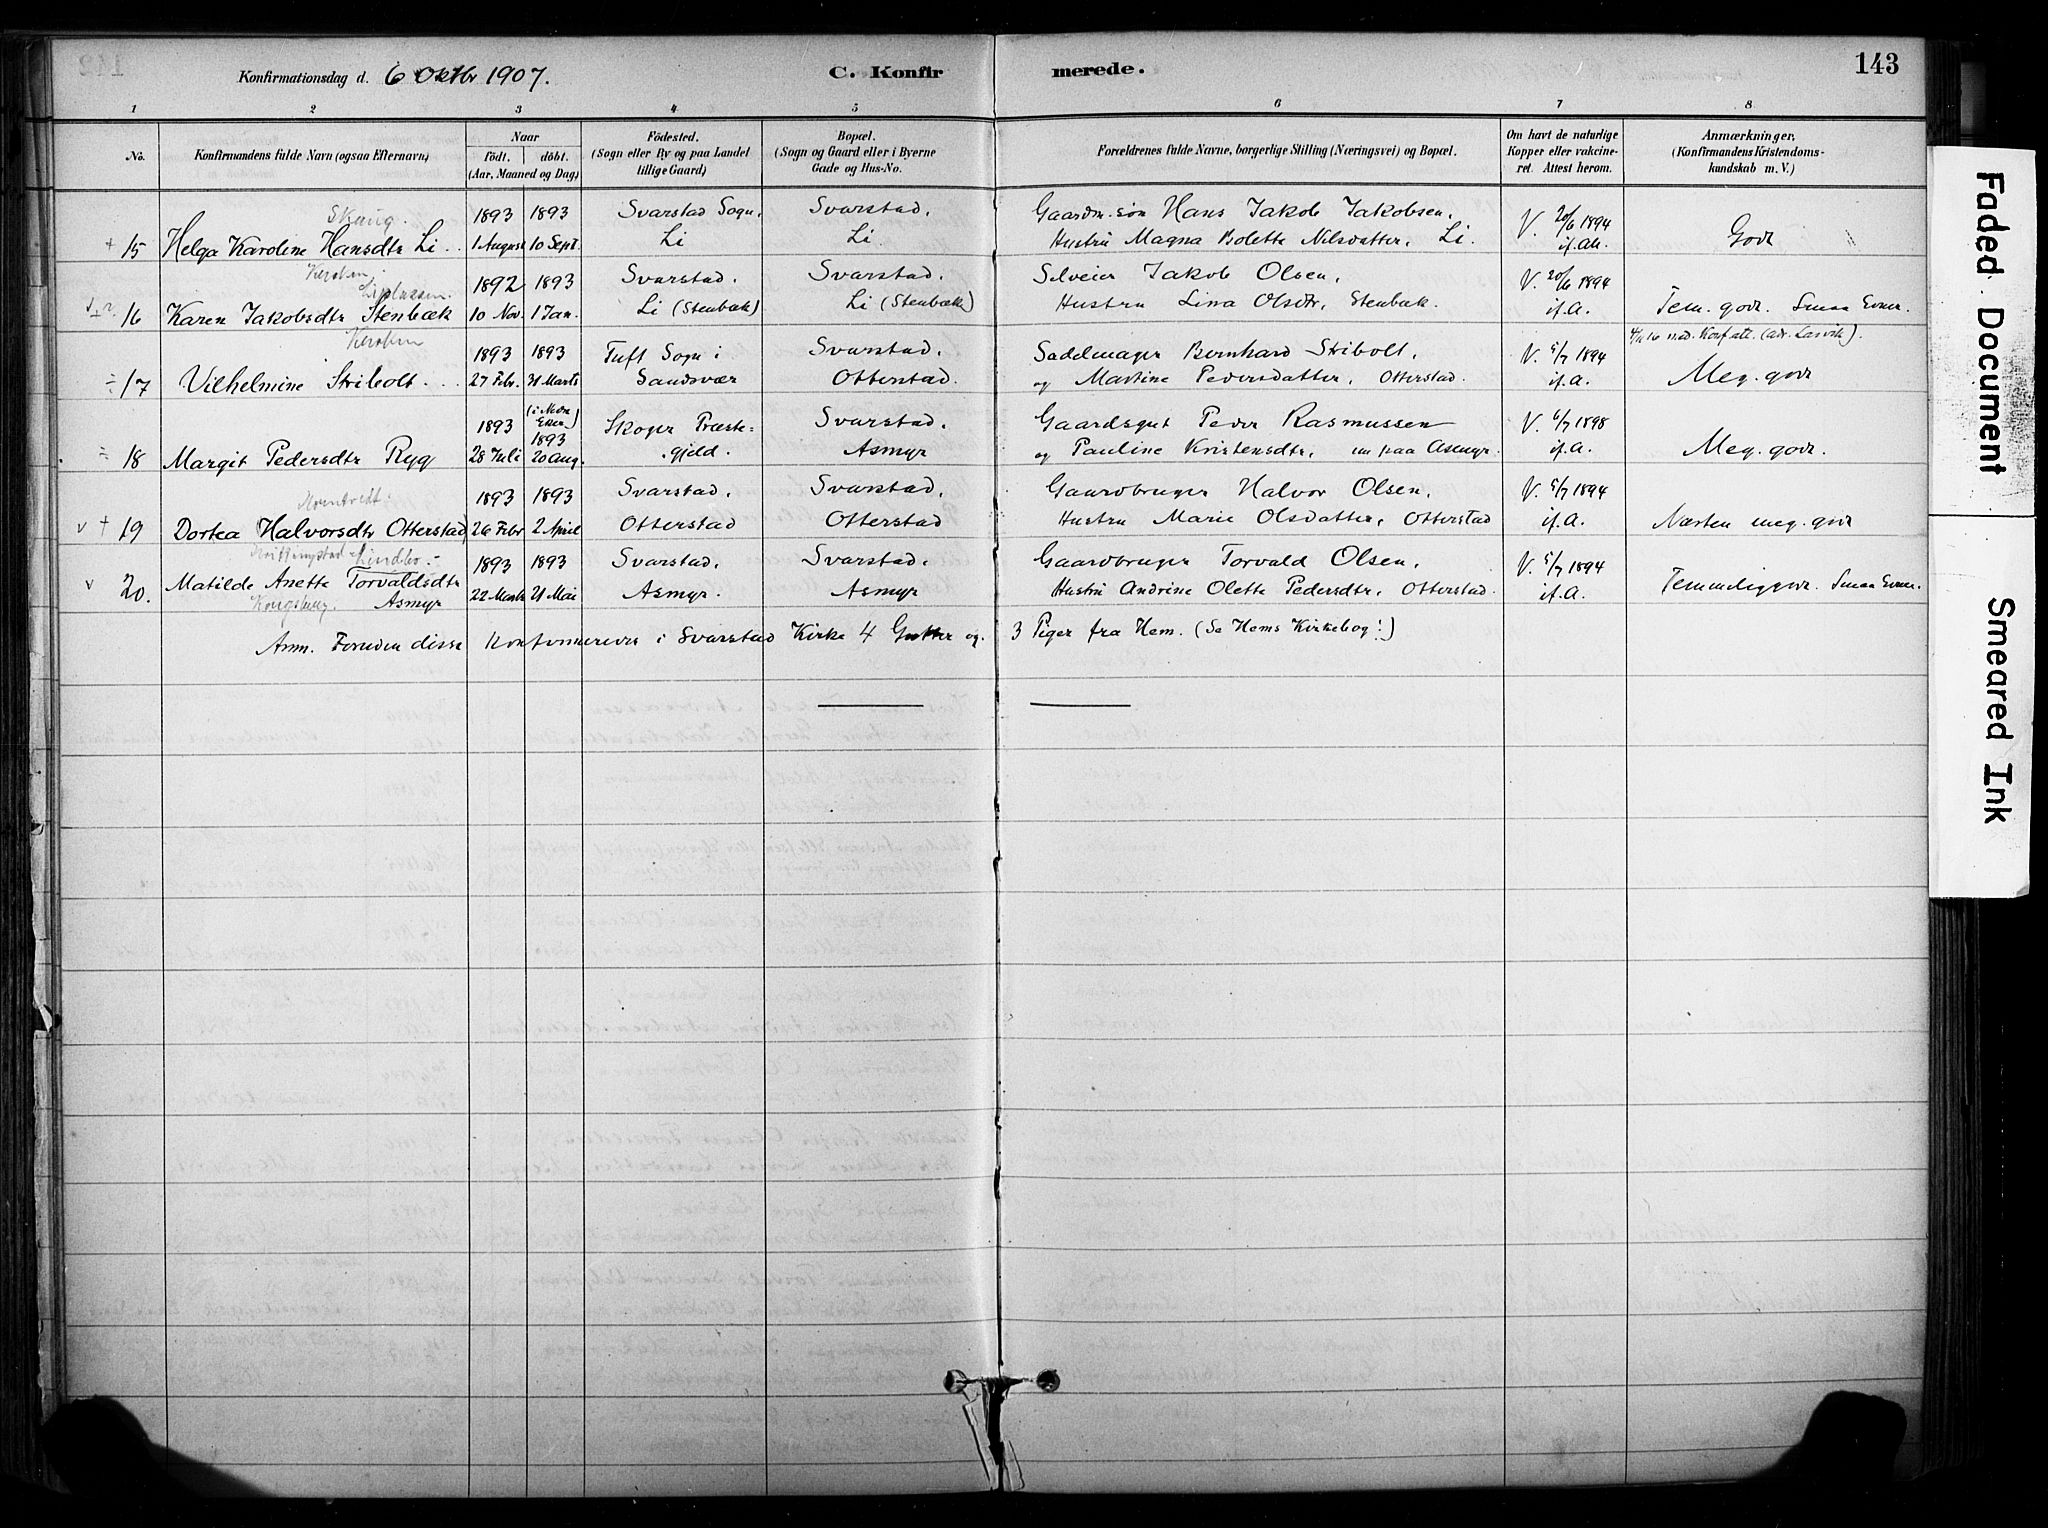 143
Konfirmationsdag d. 6 Oktbr 1907.
C. Konfirmerede.
1 2 3 4 5 6 7 8
No.
Konfirmandens fulde Navn (ogsaa Efternavn)
Naar
födt. döbt.
(Aar, Maaned og Dag)
Födested.
(Sogn eller By og paa Landet
tillige Gaard)
Bopæl.
(Sogn og Gaard eller i Byerne
Gade og Hus-No.
Forældrenes fulde Navne, borgerlige Stilling (Næringsvei) og Bopæl.
Om havt de naturlige
Kopper eller vakcine-
ret. Attest herom.
Anmærkninger.
(Konfirmandens Kristendoms-
kundskab m. V.)
Skaug.
1893 1893 Svarstad Sogn. Svarstad. Gaardm. søn Hans Jakob Jakobsen. V. 20/6 1894
+ 15 Helga Karoline Hansdtr Li. 1 August 10 Sept. Li Li. Hustru Magna Bolette Nilsdatter. Li. if. Att. Godt
1892 1893 Svarstad. Svarstad. Selveier Jakob Olsen. V. 20/6 1894
16 Karen Jakobsdtr Stenbæk 10 Nov. 1 Jan. Li (Stenbæk) Li (Stenbæk) Hustru Lina Olsdtr, Stenbæk. if. A. Tem. godt. Smaa Evner.
1893 1893 Tuft Sogn i Svarstad. Sadelmager Bernhard Stribolt. V. 5/7 1894
÷ 17 Vilhelmine Stribolt. 27 Febr. 31 Marts Sandsvær Otterstad. og Martine Pedersdatter, Otterstad. if. A. Meg. godt
1893 1893 Skoger Præste- Svarstad. Gaardsgut Peder Rasmussen V. 6/7 1898
÷ 18 Margit Pedersdtr Ryg 28 Juli 20 Aug. gjeld. Asmyr og Pauline Kristensdtr, nu paa Asmyr. if. A. Meg. godt.
1893 1893 Svarstad. Svarstad. Gaardbruger Halvor Olsen. V. 5/7 1894
v + 19 Dortea Halvorsdtr Otterstad 26 Febr 2 April Otterstad Otterstad Hustru Marie Olsdatter, Otterstad if. A. Næsten meg. godt
Lindbo.
1893 1893 Svarstad. Svarstad. Gaardbruger Torvald Olsen. V. 5/7 1894
v 20. Matilde Anette Torvaldsdtr 22 Marts 21 Mai Asmyr. Asmyr Hustru Andrine Olette Pedersdtr, Otterstad. if. A. Temmelig godt. Smaa Evner.
Kongsberg. Asmyr
Anm. Foruden disse konfirmeredes i Svarstad Kirke 4 Gutter og 3 Piger fra Hem. (Se Hems Kirkebog!)
Faded Document
Smeared Ink